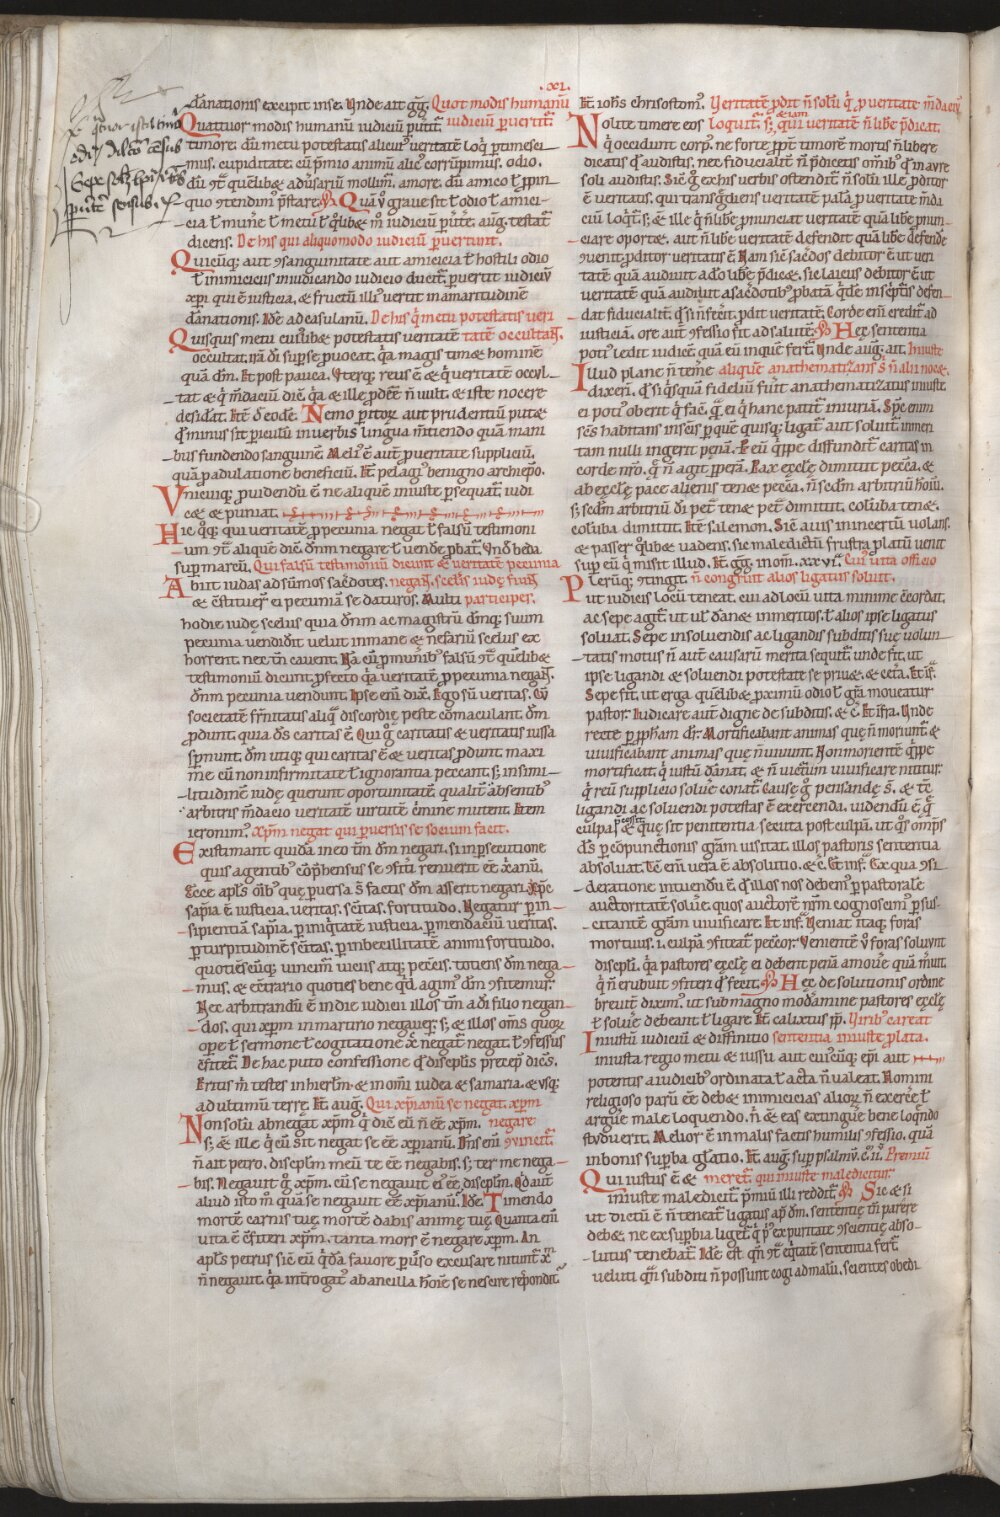 .XL.
dãnationis excipit in se. Unde ait gg̃. Quot modis humanũ
Quattuor modis humanũ iudiciũ ꝑuertit᷑. iudiciũ ꝑuertit᷑.
timore. dũ metu potestatis alicuiꝰ ueritatẽ loq̃ ꝑtimesci
mus. cupiditate. cũ p̃mio animũ alicꝰ corrũpimus. odio.
dũ ꝯt᷑ quẽlibet adũsariũ molimur. amore. dũ amico ł ꝓpin
quo ꝯtendimꝰ p̃stare. Quã ũ graue sit ł odio ł amici
cia ł mun̄e ł metu ł qͦlibet m̊ iudiciũ ꝑũte. aug̃. testat᷑
dicens. De his qui aliquo modo iudiciũ ꝑuertunt.
Quicũq; aut ꝯsanguinitate aut amicicia ł hostili odio
ł inimiciciis in iudicando iudicio ducit᷑. ꝑuertit iudiciũ
xp̃i qui ẽ iusticia. et fructũ illiꝰ uertit in amaritudinẽ
dãnationis. Idẽ ad casulanũ. De his qͥ metu potestatis ueri
Quisquis metu cuiꝰlibet potestatis ueritatẽ tatẽ occultãt.
occultat. irã dĩ suꝑ se ꝓuocat. q̃a magis timet hominẽ
quã dm̃. Et post pauca. Uterq; reus ẽ et q̃ ueritatẽ occul
tat et q̃ m̃daciũ dic̃. q̃a et ille ꝓdeẽ ñ uult. et iste nocere
desid̃at. Itẽ d̃ eodẽ. Nemo ꝑitoꝝ aut prudentiũ putet
q̃ minus sit ꝑiculũ in uerbis lingua m̃tiendo quã mani
bus fundendo sanguinẽ. Meliꝰ ẽ aut̃ ꝓ ueritate suppliciũ.
quã ꝓ adulatione beneficiũ. Itẽ pelagiꝰ benigno archiep̃o.
Unicuiq; ꝓuidendũ ẽ ne aliquẽ iniuste ꝑsequat᷑. iudi
cet et puniat.
Hic q̊q; qui ueritatẽ ꝓ pecunia negat ł falsũ testimoni
um ꝯt᷑ aliquẽ dic̃. dñm negare ł uend̃e ꝓbat᷑. Vñ beda
suꝑ marcũ. Qui falsũ testimoniũ dicunt et ueritatẽ pecunia
Abiit iudas ad sũmos sac̃dotes. negañ. scel̃is iudę fiunt
et ꝯstituer̃ ei pecuniã se daturos. Multi participes.
hodie iudę scelus quia dñm ac magistrũ dm̃q; suum
pecunia uendidit uelut inmane et nefariũ scelus ex
horrent. nec tñ cauent. Nã cũ ꝓ muñibꝰ falsũ ꝯt᷑ quẽlibet
testimoniũ dicunt. ꝓfecto q̃a ueritatẽ ꝓ pecunia negañ.
dñm pecunia uendunt. Ipse eni dix̃. Ego sũ ueritas. Cũ
societatẽ fr̃nitatis aliq̃ discordię peste cõmaculant. dm̃
ꝓdunt. quia dš caritas ẽ. Qui ġ caritatis et ueritatis iussa
sp̃nunt. dm̃ utiq; qui caritas ẽ et ueritas ꝓdunt. maxi
me cũ non infirmitate ł ignorantia peccant. s; in simi
litudinẽ iudę querunt oportunitatẽ. qualit̃ absentibꝰ
arbitris m̃dacio ueritatẽ uirtutẽ c̃mine mutent. Item
ieronimꝰ. Xp̃m negat qui ꝑuersis se socium facit.
Existimant quidã in eo tm̃ dm̃ negari. si in ꝑsecutione
quis a gentibꝰ cõp̃hensus se ꝯfit̃i renuerit eẽ xp̃ianũ.
Ecce apl̃s oĩbꝰ quę ꝑuersa s̃ factis dm̃ asserit negari. Xp̃c
sap̃ia ẽ. iusticia. ueritas. sc̃itas. fortitudo. Negatur ꝑ in
sipientiã sap̃ia. ꝑ iniq̃tatẽ iusticia. ꝑ mendaciũ ueritas.
ꝑ turpitudinẽ sc̃itas. ꝑ inbecillitatẽ animi fortitudo.
quotiẽscũq; uincimur uiciis atq; peccatis. totiens dm̃ nega
mus. et econtrario quoties bene q̃d agimꝰ dm̃ ꝯfitemur.
Nec arbitrandũ ẽ in die iudicii illos tm̃ a dĩ filio negan
dos. qui xp̃m in martirio negauer̃. s; et illos om̃s quoꝝ
ope ł sermone ł cogitatione xp̃c negatꝰ negat. ł ꝯfessus
ꝯfitet᷑. De hac puto confessione q̃ discipl̃is precep̃ dicẽs.
Eritis m̃ testes in hierl̃m et in om̃i iudea et samaria. et usq;
ad ultimum terrę. Itẽ aug̃. Qui xp̃ianũ se negat. xp̃m
Non solũ abnegat xp̃m q̃ dic̃ eũ ñ eẽ xp̃m. negare
s; et ille q̃ cũ sit negat se eẽ xp̃ianũ. Dñs eni ꝯuincit᷑.
ñ ait petro. discipl̃m meũ te eẽ negabis. s; ter me nega
bis. Negauit ġ xp̃m. cũ se negauit eiꝰ eẽ discipl̃m. Qd̃ aut̃
aliud isto m̊ quã se negauit eẽ xp̃ianũ. Idẽ. Timendo
mortẽ carnis tuę. mortẽ dabis animę tuę. Quanta eni
uita ẽ ꝯfiteri xp̃m. tanta mors ẽ negare xp̃m. An
apl̃s petrus sic̃ eũ q̃dã fauore ꝑũso excusare nitunt᷑. xp̃m
ñ negauit. q̃a int̃rogatꝰ ab ancilla hoĩe se nescire respondit.
Itẽ. ioh̃s chrisostomꝰ. Ueritatẽ ꝓdit ñ solũ q̃ ꝓ ueritate m̃daciũ
Nolite timere eos loquit᷑. s; etiam qui ueritatẽ ñ libe p̃dicat.
q̃ occidunt corpꝰ. ne forte ꝓpt̃ timorẽ mortis ñ libere
dicatis q̃ audistis. nec fiducialit̃ ñ p̃dicetis om̃ibꝰ q̃ in aure
soli audistis. Sic̃ ġ ex his uerbis ostendit᷑. ñ solũ ille ꝓditor
ẽ ueritatis. qui transgr̃diens ueritatẽ palã ꝓ ueritate m̃da
ciũ loq̃t᷑. s; et ille q̃ ñ libe ꝓnunciat ueritatẽ quã libe ꝓnun
ciare oportet. aut ñ libe ueritatẽ defendit quã libe defende
ꝯuenit. ꝓditor ueritatis ẽ. Nam sic̃ sac̃dos debitor ẽ ut ueri
tatẽ quã audiuit a dõ libe p̃dicet. sic laicus debitor ẽ ut
ueritatẽ quã audiuit a sac̃dotibꝰ ꝓbatã q̃dẽ in sc̃ptis defen
dat fiducialit̃. q̃ si ñ fec̃it. ꝓdit ueritatẽ. Corde eni credit᷑ ad
iusticiã. ore aut̃ ꝯfessio fit ad salutẽ. Hęc sententia
potiꝰ ledit iudicẽ. quã eũ in quẽ fert᷑. Unde aug̃. ait. Iniuste
Illud plane ñ tem̃e aliquẽ anathematizans s̃ ñ alii nocet.
dixeri. q̃ si q̃squã fideliũ fũit anathematizatus iniuste
ei potiꝰ oberit q̃ fac̃. q̃ ei q̃ hanc patit᷑ iniuriã. Sp̃c enim
sc̃s habitans in sc̃is ꝑ quẽ quisq; ligat᷑ aut soluit᷑. inmeri
tam nulli ingerit penã. Ꝑ eũ q̃ppe diffundit᷑ caritas in
corde nr̃o. q̃ ñ agit ꝑꝑã. Pax ęccl̃ę dimittit pecc̃a. et
ab ęccl̃ę pace alienis tenet pecc̃a. ñ sc̃dm arbitriũ hoĩu.
s; sc̃dm arbitriũ dĩ. petra tenet petra dimittit. colũba tenet.
colũba dimittit. Itẽ salemon. Sic̃ auis in incertũ uolans.
et passer q̊libet uadens. sic maledictũ frustra ꝓlatũ uenit
suꝑ eũ q̃ misit illud. Itẽ. gg̃. in om̃. xxvi. Cuiꝰ uita officio
Plerũq; ꝯtingit. ñ congruit alios ligatus soluit.
ut iudicis locũ teneat. cui ad locũ uita minime ꝯcordat.
ac sepe agit᷑. ut ul̃ dãnet inmeritos. ł alios ipse ligatus
soluat. Sepe in soluendis ac ligandis subditis suę uolun
tatis motus ñ aut̃ causarũ merita sequit᷑. unde fit. ut
ipse ligandi et soluendi potestate se priuet. et cet̃a. Et if̃.
Sepe fit. ut erga quẽlibet proximũ odio ł gr̃a moueatur
pastor. Iudicare aut̃ digne de subditis. et c̃. Et ifra. Unde
recte ꝑ ꝓph̃am dr̃. Mortificabant animas quę ñ moriunt᷑. et
uiuificabant animas quę ñ uiuunt. Non morientẽ q̃ppe
mortificat. q̃ iustũ dãnat. et ñ uict̃um uiuificare nititur
q̃ reũ supplicio solũe conat᷑. Causę ġ pensandę s̃. et tc̃
ligandi ac soluendi potestas ẽ exercenda. uidendũ ẽ q̃
culpa p̃cessit et quę sit penitentia secuta post culpã. ut q̊s om̃ps
dš ꝑ cõpunctionis gr̃am uisitat. illos pastoris sententia
absoluat. Tc̃ eni uera ẽ absolutio. et c̃. Et inf̃. Ex qua ꝯsi
deratione intuendũ ẽ q̃ illos nos debemꝰ ꝑ pastorale
auctoritatẽ solũe. quos auctorẽ nr̃m cognoscimꝰ ꝑ sus
citantẽ gr̃am uiuificare. Et inf̃. Ueniat itaq; foras
mortuus. i. culpã ꝯfiteat᷑ pecc̃or. Uenientẽ ũ foras soluunt
discipl̃i. q̃a pastores ęccl̃ę ei debent penã amouẽ quã m̃uit.
q̃ ñ erubuit ꝯfiteri q̃ fecit. Hęc de solutionis ordine
breuit̃ diximꝰ. ut sub magno modamine pastores ęccl̃ę
ł solũe debeant ł ligare. Itẽ. calixtus pp̃. Uiribꝰ careat
Iniustũ iudiciũ et diffinitio sententia iniuste ꝓlata.
iniusta regio metu et iussu aut cuiꝰcũq; ep̃i aut
potentis a iudicibꝰ ordinata ł acta ñ ualeat. Homini
religioso parũ eẽ debet inimicicias alioꝝ ñ exercẽ ł
argũe male loquendo. ñ et eas extinguẽ bene loq̃ndo
studuerit. Melior ẽ in malis factis humilis ꝯfessio. quã
in bonis suꝑba gl̃atio. Itẽ. aug̃. suꝑ psalmũ. c̃. ii̊. Premiũ
Qui iustus ẽ et meret᷑. qui iniuste maledicitur.
iniuste maledicit᷑. p̃miũ illi reddit᷑. Sic et si
ut dictũ ẽ ñ teneat᷑ ligatus ap̃ dm̃. sententię tm̃ parere
debet. ne ex suꝑbia liget᷑ q̃ pͥꝰ ex puritate ꝯscientię abso
lutus tenebat᷑. Idẽ est q̃ñ ꝯt᷑ eq̃tatẽ sententia fert᷑.
ueluti q̃ñ subditi ñ possunt cogi ad malũ. scientes obedi